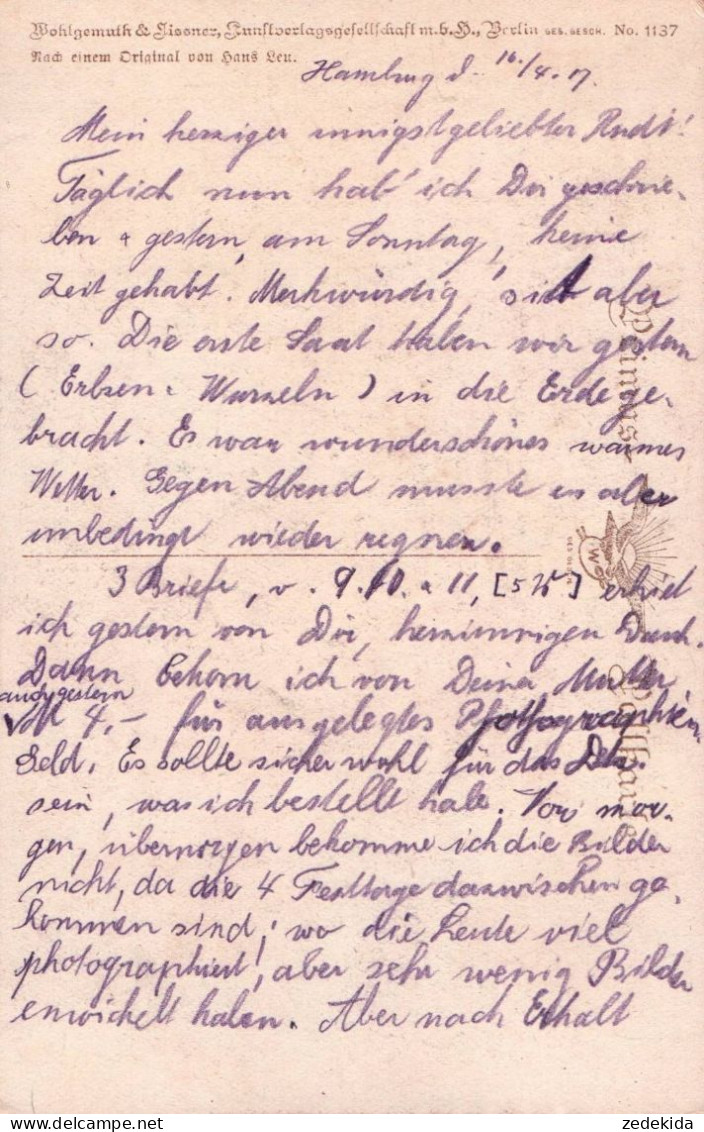 Wohlgemuth & Lissner, Kunstverlagsgesellschaft m.b.H., Berlin GES. GESCH. No. 1137
Nach einem Original von Hans Leu.
Hamburg d. 16./4. 17.
Mein herziger innigstgeliebter Rudi!
Täglich nun hab' ich Dir geschrie-
ben & gestern, am Sonntag, keine
Zeit gehabt. Merkwürdig, ist aber
so. Die erste Saat haben wir gestern
(Erbsen & Wurzeln) in die Erde ge-
bracht. Es war wunderschönes warmes
Wetter. Gegen Abend musste es aber
unbedingt wieder regnen.
3 Briefe, v. 9. 10. & 11, [525] erhielt
ich gestern von Dir, herzinnigen Dank.
Dann bekam ich von Deiner Mutter
auch gestern
M 4,- für ausgelegtes Photographien-
Geld. Es sollte sicher wohl für das
sein, was ich bestellt habe. Vor mor-
gen, übermorgen bekomme ich die Bilder
nicht, da die 4 Festtage dazwischen ge-
kommen sind, wo die Leute viel
photographiert, aber sehr wenig Bilder
entwickelt haben. Aber nach Erhalt
zedekida